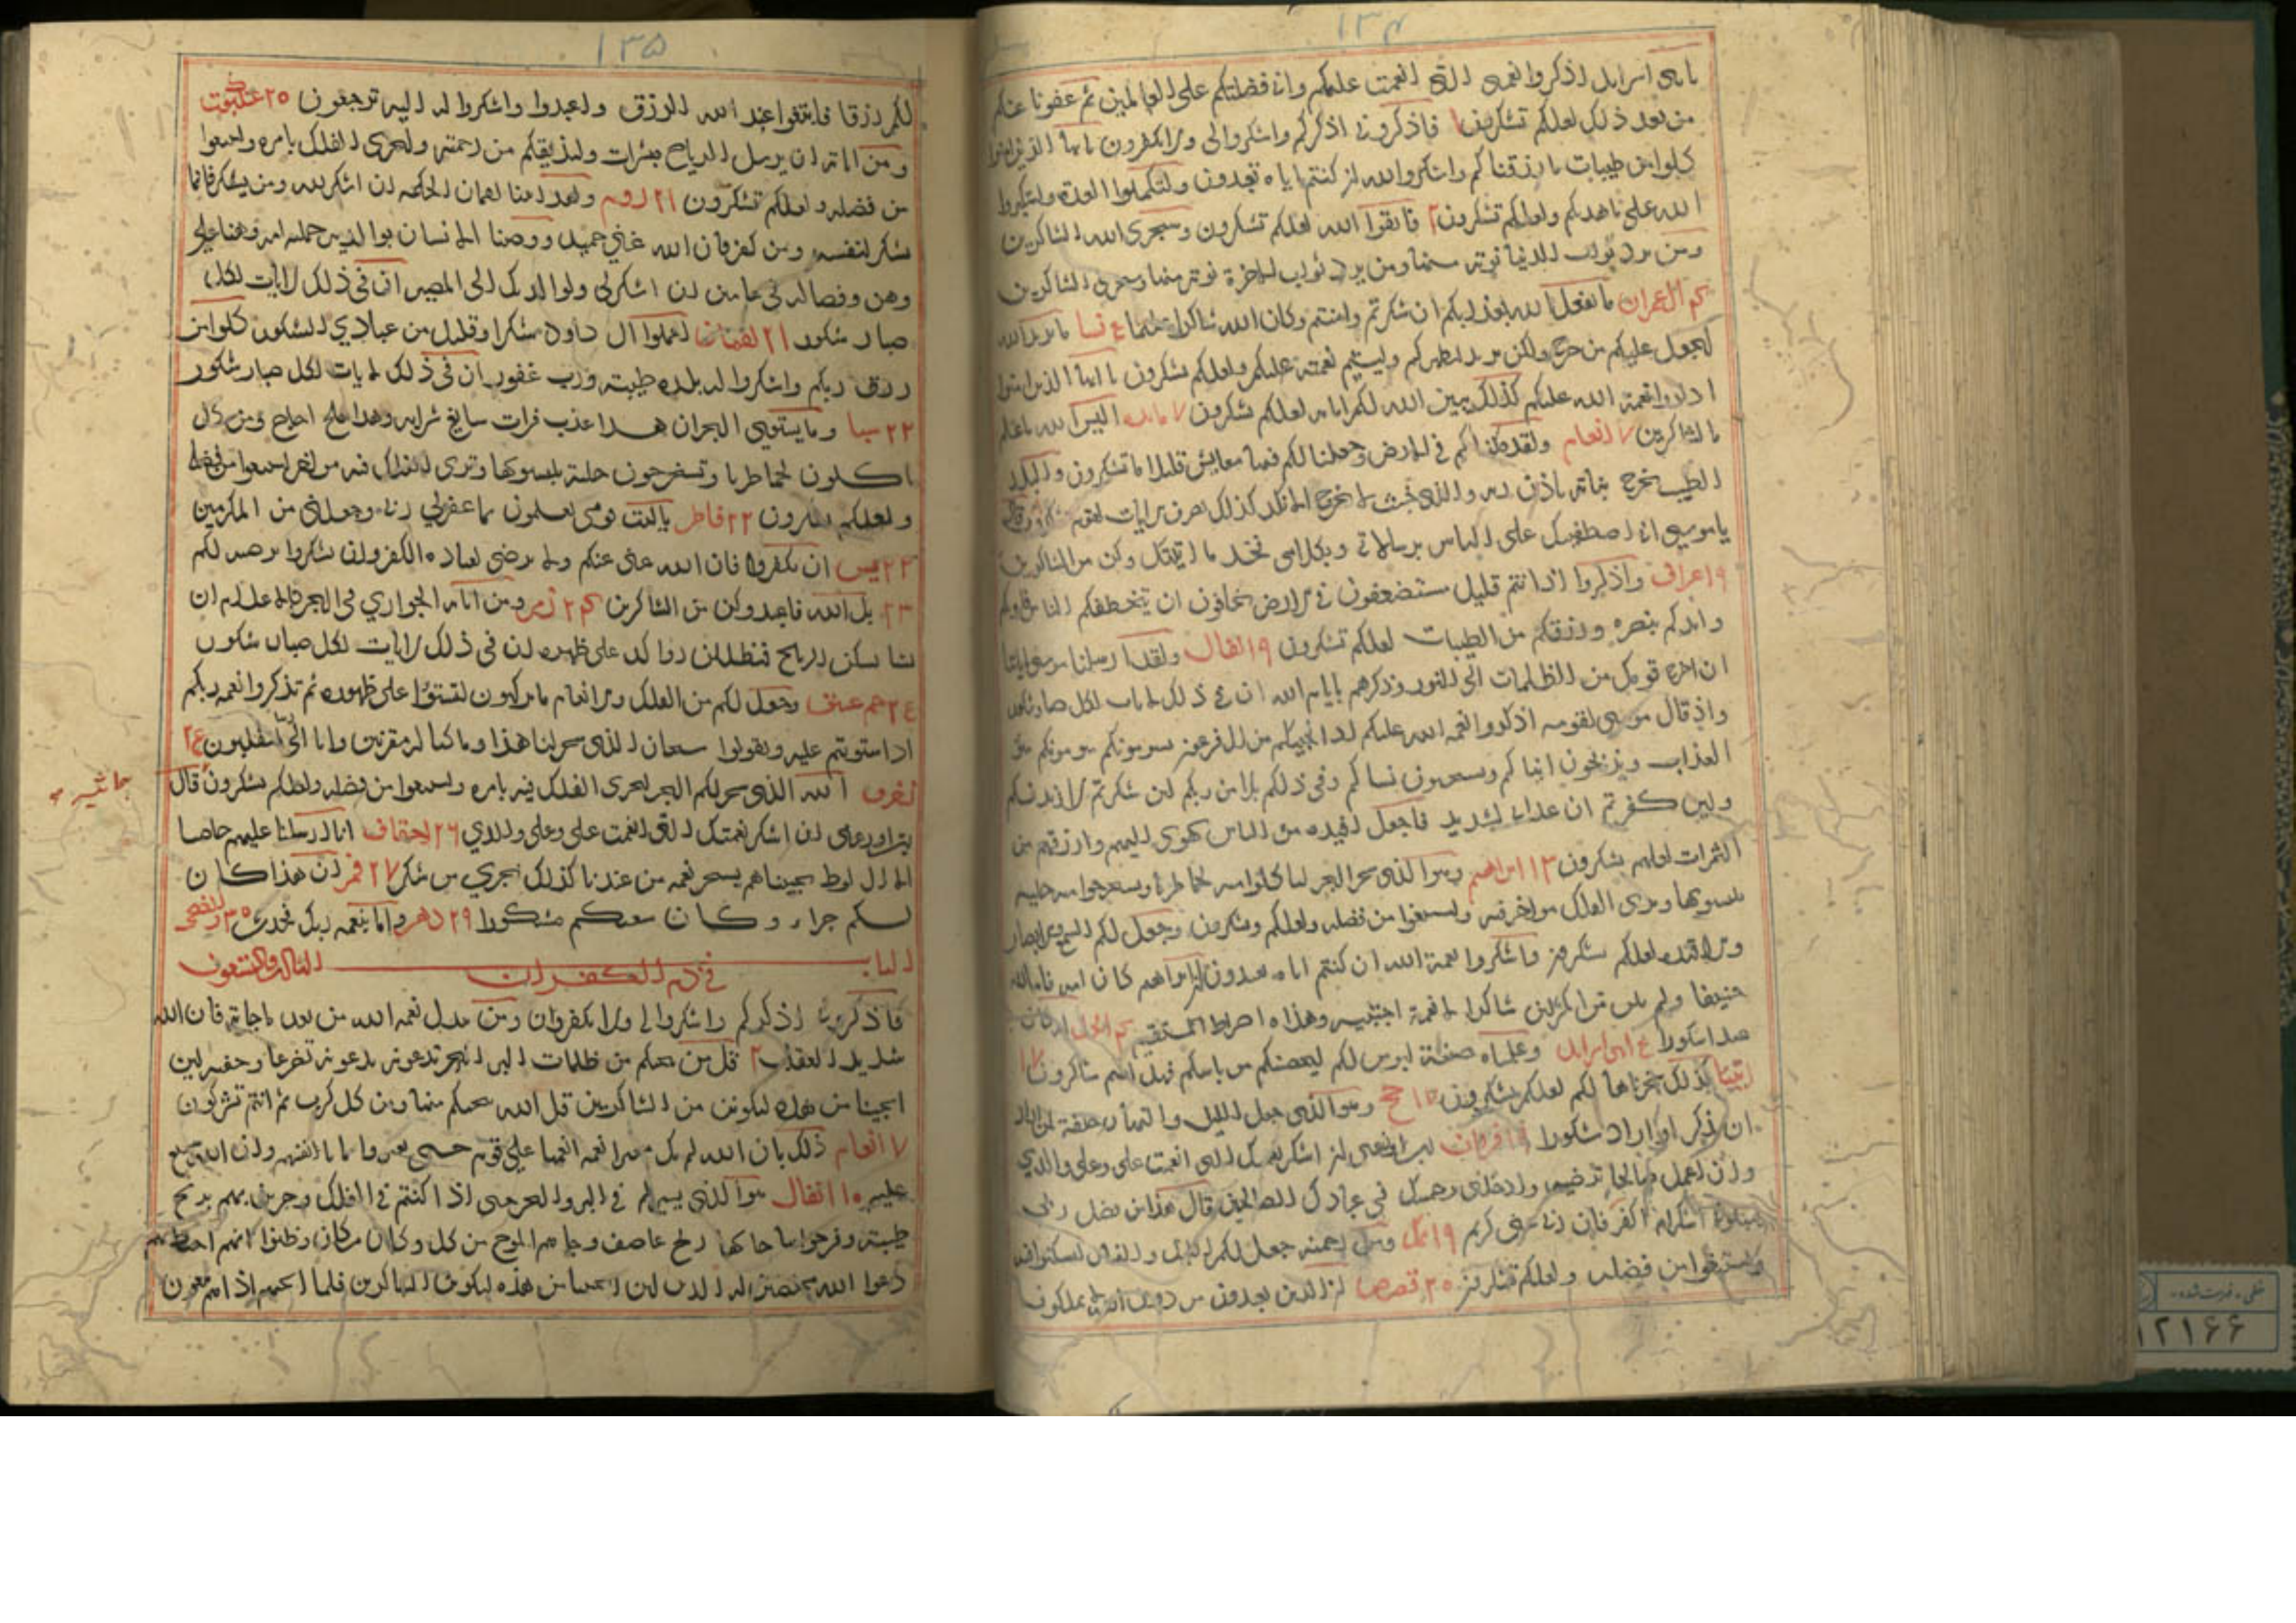 ۱۳۴
يا بنى اسرايل اذكروا نعمتى التى انعمت عليكم وانى فضلتكم على العالمين ثم عفونا عنكم
من بعد ذلك لعلكم تشكرون فاذكرونى اذكركم واشكروالى ولا تكفرون يا ايها الذين امنوا
كلوا من طيبات ما رزقناكم واشكروا لله ان كنتم اياه تعبدون ولتكملوا العدة ولتكبروا
الله على ما هديكم ولعلكم تشكرون ۲ فاتقوا الله لعلكم تشكرون وسيجزى الله الشاكرين
ومن يرد ثواب الدنيا نوته منها ومن يرد ثواب الاخرة نوته منها وسنجزى الشاكرين
۴ ال عمران ما يفعل الله بعذابكم ان شكرتم وامنتم وكان الله شاكرا عليما نسا ما يريد الله
ليجعل عليكم من حرج ولكن يريد ليطهركم وليتم نعمته عليكم ولعلكم تشكرون يا ايها الذين امنوا
اذكروا نعمة الله عليكم كذلك يبين الله لكم اياته لعلكم تشكرون ۷ مائده اليس الله باعلم
بالشاكرين ۷ انعام ولقد مكناكم فى الارض وجعلنا لكم فيها معايش قليلا ما تشكرون والبلد
الطيب يخرج نباته باذن ربه والذى خبث لا يخرج الا نكدا كذلك نصرف الايات لقوم يشكرون قال
يا موسى انى اصطفيتك على الناس برسالاتى وبكلامى فخذ ما اتيتك وكن من الشاكرين
۹ اعراف واذكروا اذ انتم قليل مستضعفون فى الارض تخافون ان يتخطفكم الناس فاويكم
وايدكم بنصره ورزقكم من الطيبات لعلكم تشكرون ۹ انفال ولقد ارسلنا موسى باياتنا
ان اخرج قومك من الظلمات الى النور وذكرهم بايام الله ان فى ذلك لايات لكل صبار شكور
واذ قال موسى لقومه اذكروا نعمة الله عليكم اذ انجيكم من ال فرعون يسومونكم سوء
العذاب ويذبحون ابناكم ويستحيون نساكم وفى ذلكم بلا من ربكم لئن شكرتم لازيدنكم
ولين كفرتم ان عذابى لشديد فاجعل افئدة من الناس تهوى اليهم وارزقهم من
الثمرات لعلهم يشكرون ۱۳ ابراهيم وهو الذى سخر البحر لتاكلوا منه لحما طريا وتستخرجوا منه حلية
تلبسونها وترى الفلك مواخر فيه ولتبتغوا من فضله ولعلكم تشكرون وجعل لكم السمع والابصار
والافئدة لعلكم تشكرون واشكروا نعمة الله ان كنتم اياه تعبدون ان ابراهيم كان امة قانتا لله
حنيفا ولم يك من المشركين شاكرا لانعمه اجتبيه وهداه الى صراط مستقيم النحل انه كان
عبدا شكورا بنى اسرايل وعلمناه صنعة لبوس لكم ليحصنكم من باسكم فهل انتم شاكرون ۱۷
انبيا كذلك سخرناها لكم لعلكم تشكرون حج وهو الذى جعل الليل والنهار خلفة لمن اراد
ان يذكر او اراد شكورا فرقان رب اوزعنى ان اشكر نعمتك التى انعمت على وعلى والدي
وان اعمل صالحا ترضيه وادخلنى برحمتك فى عبادك الصالحين قال هذا من فضل ربى
ليبلونى ااشكر ام اكفر فان ربى غنى كريم ۱۹ نمل ومن رحمته جعل لكم الليل والنهار لتسكنوا فيه
ولتبتغوا من فضله ولعلكم تشكرون ۲۰ قصص ان الذين تعبدون من دون الله لا يملكون
۱۳۵
لكم رزقا فابتغوا عند الله الرزق واعبدوا واشكروا له اليه ترجعون ۲۵ عنكبوت
ومن اياته ان يرسل الرياح مبشرات وليذيقكم من رحمته ولتجرى الفلك بامره ولتبتغوا
من فضله ولعلكم تشكرون ۲۱ روم ولقد اتينا لقمان الحكمة ان اشكر لله ومن يشكر فانما
يشكر لنفسه ومن كفر فان الله غنى حميد ووصينا الانسان بوالديه حملته امه وهنا على
وهن وفصاله فى عامين ان اشكرلى ولوالديك الى المصير ان فى ذلك لايات لكل
صبار شكور ۲۱ لقمان اعملوا ال داود شكرا وقليل من عبادي الشكور كلوا من
رزق ربكم واشكروا له بلدة طيبة ورب غفور ان فى ذلك لايات لكل صبار شكور
۲۲ سبا وما يستوى البحران هذا عذب فرات سايغ شرابه وهذا ملح اجاج ومن كل
تاكلون لحما طريا وتستخرجون حلية تلبسونها وترى الفلك فيه مواخر لتبتغوا من فضله
ولعلكم تشكرون ۲۲ فاطر ياليت قومى يعلمون بما غفرلي ربى وجعلنى من المكرمين
۲۳ يس ان تكفروا فان الله غنى عنكم ولا يرضى لعباده الكفر وان تشكروا يرضه لكم
۲۳ بل الله فاعبد وكن من الشاكرين ۲۴ زمر ومن اياته الجواري فى البحر كالاعلام ان
يشا يسكن الريح فيظللن رواكد على ظهره ان فى ذلك لايات لكل صبار شكور
۲۴ حم عسق وجعل لكم من الفلك والانعام ما تركبون لتستووا على ظهوره ثم تذكروا نعمة ربكم
اذا استويتم عليه وتقولوا سبحان الذى سخر لنا هذا وما كنا له مقرنين وانا الى ربنا لمنقلبون
زخرف الله الذى سخر لكم البحر لتجرى الفلك فيه بامره ولتبتغوا من فضله ولعلكم تشكرون قال
جاثيه
رب اوزعنى ان اشكر نعمتك التى انعمت على وعلى والدي ۲۶ احقاف انا ارسلنا عليهم حاصبا
الا ال لوط نجيناهم بسحر نعمة من عندنا كذلك نجزي من شكر ۲۷ قمر ان هذا كان
لكم جزاء وكان سعيكم مشكورا ۲۹ دهر واما بنعمة ربك فحدث ۳۰ والضحى
الباب الثالث والتسعون فى ذم الكفران
فاذكرونى اذكركم واشكروا لى ولا تكفرون ومن يبدل نعمة الله من بعد ما جاته فان الله
شديد العقاب ۲ قل من ينجيكم من ظلمات البر والبحر تدعونه تضرعا وخفية لين
انجينا من هذه لنكونن من الشاكرين قل الله ينجيكم منها ومن كل كرب ثم انتم تشركون
۷ انعام ذلك بان الله لم يك مغيرا نعمة انعمها على قوم حتى يغيروا ما بانفسهم وان الله سميع
عليم ۱۰ انفال هو الذى يسيركم فى البر والبحر حتى اذا كنتم فى الفلك وجرين بهم بريح
طيبة وفرحوا بها جاتها ريح عاصف وجاهم الموج من كل مكان وظنوا انهم احيط بهم
دعوا الله مخلصين له الدين لين انجيتنا من هذه لنكونن من الشاكرين فلما انجيهم اذا هم يبغون
۱۲۱۶۶